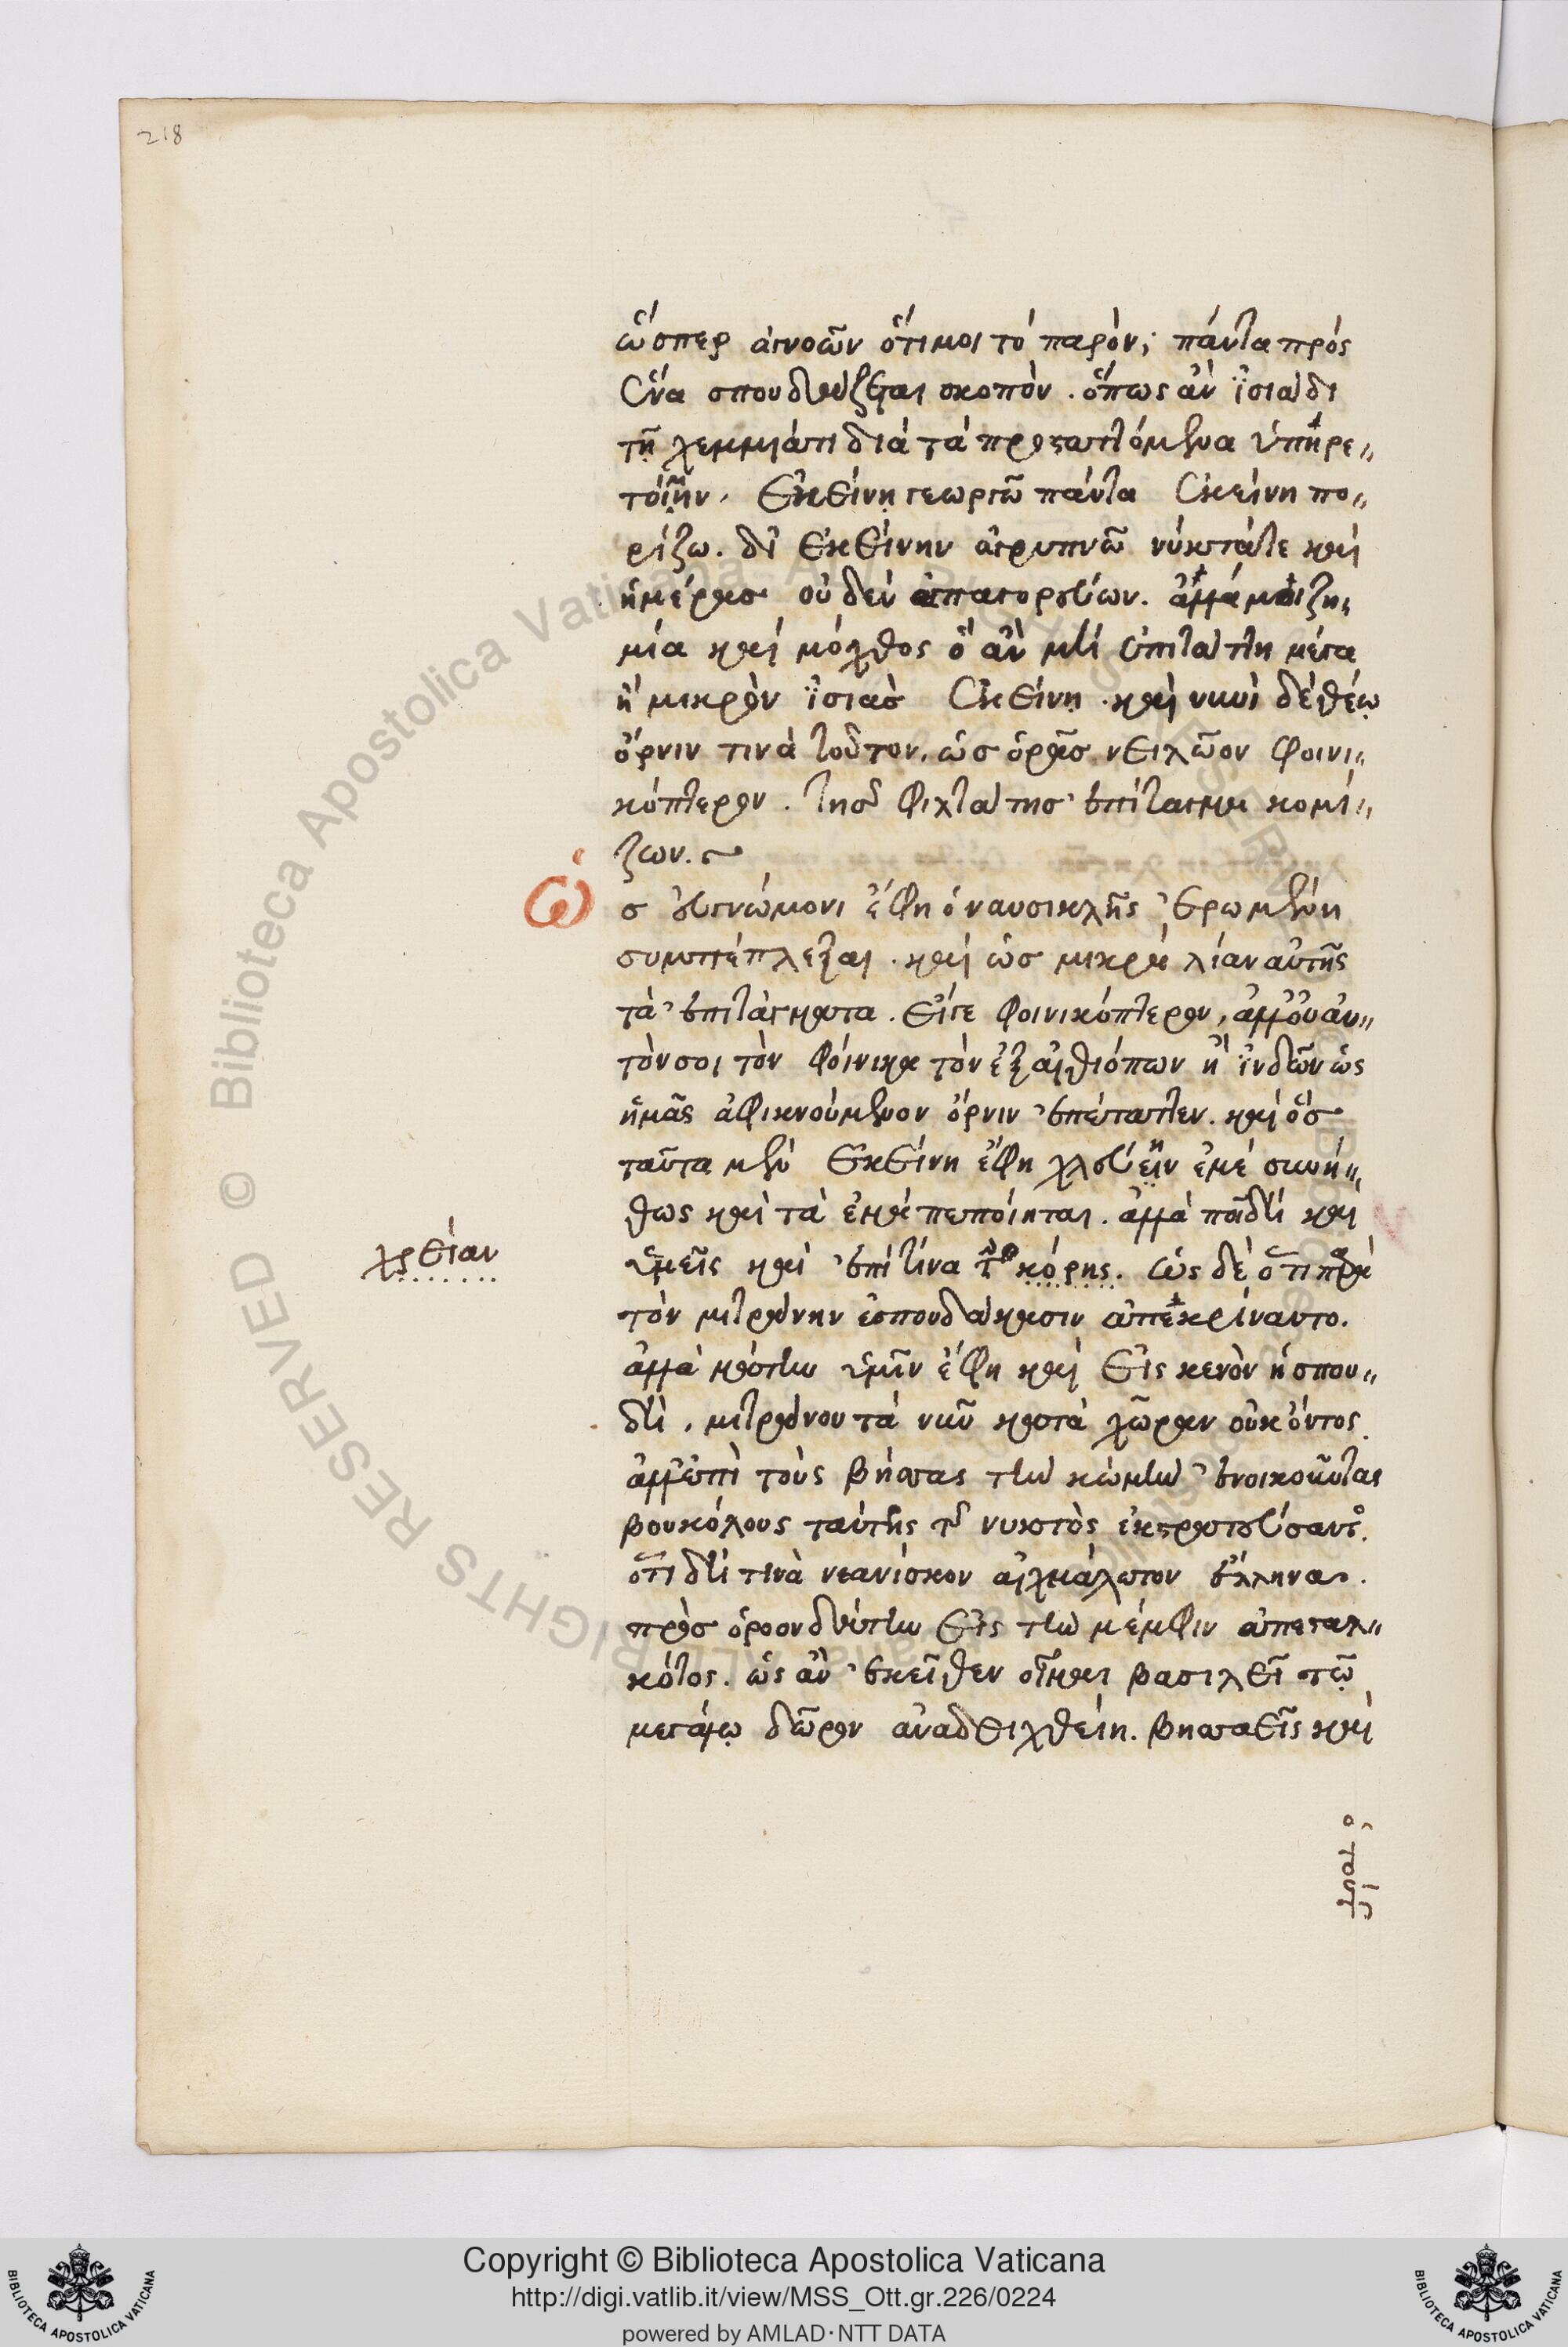 218
ὥσπερ ἀγνοῶν ὅτι μοι τὸ παρὸν; πάντα πρὸς
ἕνα σπουδάζεται σκοπὸν. ὅπως ἂν ἰσιάδι
τῇ χεμμιάτι διὰ τὰ προσταττόμενα ὑπηρε„
τοίην, ἐκείνη γεωργῶ πάντα ἐκείνη πο„
ρίζω. δι' ἐκείνην ἀγρυπνῶ νύκτάτε καὶ
ἡμέρασ οὐδὲν ἀπαγορεύων. ἀλλά μοι ζη„
μία καὶ μόχθος ὃ ἂν μὴ ἐπιτάττη μέγα
ἢ μικρὸν ἰσιὰσ ἐκείνη. καὶ νυνὶ δὲ θέω
ὄρνιν τινὰ τοῦτον, ὡσ ὁρᾶσ νειλῶον φοινι„
κόπτερον. τῆσ φιλτάτησ ἐπίταγμα κομί„
ζων.
ὡ
σ εὐγνώμονι ἔφη ὁ ναυσικλῆς ἐρωμένη
συμπέπλεξαι. καὶ ὡσ μικρὰ λίαν αὐτῆς
τὰ ἐπιτάγματα. εἴγε φοινικόπτερον, ἀλλ' οὐ αὐ„
τόν σοι τὸν φοίνικα τὸν ἐξ αἰθιόπων ἢ ἰνδῶν ὡς
ἡμᾶς ἀφικνούμενον ὄρνιν ἐπέταττεν. καὶ ὃσ
ταῦτα μὲν ἐκείνη ἔφη χλευείην ἐμὲ συνή„
θως καὶ τὰ ἐμὰ πεποίηται. ἀλλὰ ποῖ δὴ καὶ
ὑμεῖς καὶ ἐπὶ τίνα τὴν κόρης. ὡς δὲ ὅτι παρὰ
χρείαν
τὸν μιτράνην ἐσπουδάκασιν ἀπεκρίναντο.
ἀλλὰ μάτην ὑμῖν ἔφη καὶ εἰς κενὸν ἡ σπου„
δὴ, μιτράνου τὰ νῦν κατὰ χῶραν οὐκ ὄντος.
ἀλλ' ἐπὶ τοὺς βήσσας τὴν κώμην ἐνοικοῦντας
βουκόλους ταύτης τῆς νυκτὸς ἐκστρατεύσαντος.
ὅτι δή τινὰ νεανίσκον αἰχμάλωτον ἕλληνα.
πρὸσ ὀροονδάτην εἰς τὴν μέμφιν ἀπεσταλ„
κότος. ὡς ἂν ἐκεῖθεν οἶμαι βασιλεῖ τῷ
μεγάλω δῶρον ἀναδειχθείη. βησσαεῖς καὶ